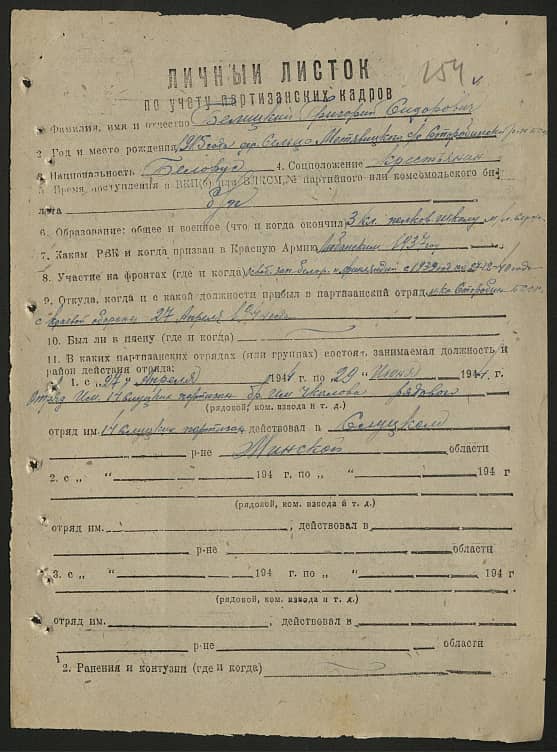 254
ЛИЧНЫЙ ЛИСТОК
по учету партизанских кадров
1. Фамилия, имя и отчество Белицкий Григорий Сидорович
2. Год и место рождения 1915 года
3. Национальность Беловус 4. Соцположение Крестьянин
5. Время поступления в ВКП(б) или ВЛКСМ, № партийного или комсомольского би-
лета б/п
6. Образование: общее и военное (что и когда окончил) 3 кл. полков школу
7. Каким РВК и когда призван в Красную Армию 1937 год
8. Участие на фронтах (где и когда) с 1939 год по
9. Откуда, когда и с какой должности прибыл в партизанский отряд
27 Апреля
10. Был ли в плену (где и когда)
11. В каких партизанских отрядах (или группах) состоял, занимаемая должность и
район действия отряда:
1. с „ 27 „ Апреля 1944 г. по „ 29 „ Июня 1944 г.
Отряд Им. 17 слуцких партизан бр. Им. Чкалова рядовой
(рядовой, ком. взвода и т. д.)
отряд им. 17 слуцких партизан действовал в Слуцком
р-не Минской области
2. с „ “ 194 г. по „ “ 194 г
(рядовой, ком. взвода и т. д.)
отряд им. , действовал в
р-не области
3. с „ “ 194 г. по „ “ 194 г
(рядовой, ком. взвода и т. д.)
отряд им. , действовал в
р-не области
12. Ранения и контузии (где и когда)